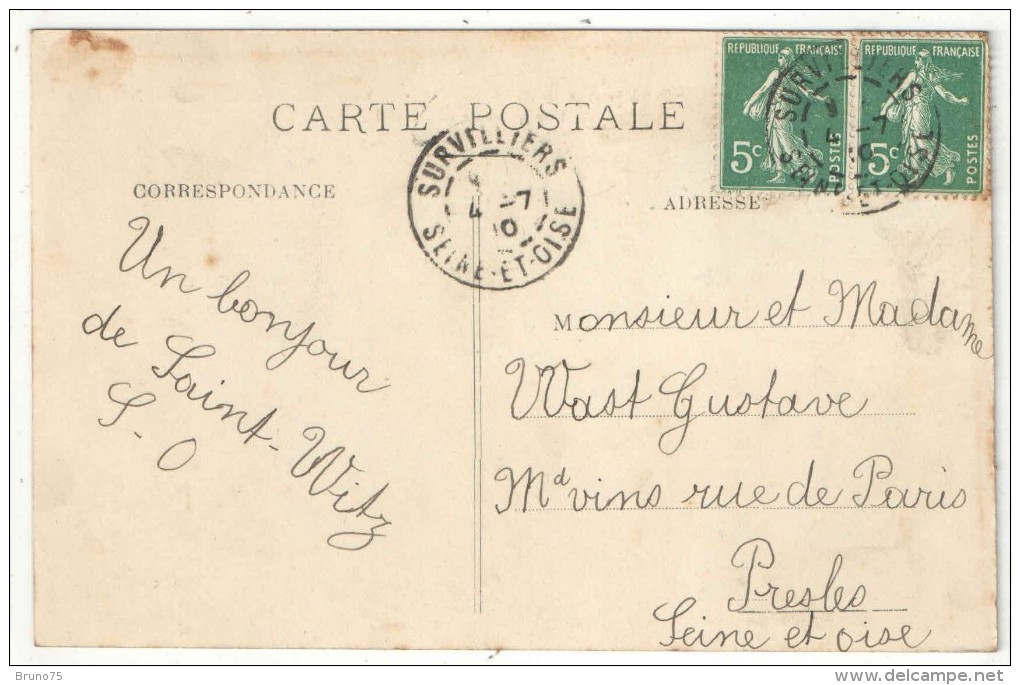 RÉPUBLIQUE FRANÇAISE
5c
POSTES
RÉPUBLIQUE FRANÇAISE
5c
POSTES
SURVILLIERS
4 -7
10
SEINE-ET-OISE
CARTE POSTALE
SURVILLIERS
4 -7
10
SEINE-ET-OISE
CORRESPONDANCE
Un bonjour
de Saint-Witz
S-O
ADRESSE
Monsieur et Madame
Wast Gustave
Md vins rue de Paris
Presles
Seine et oise
Bruno75
delcampe.net